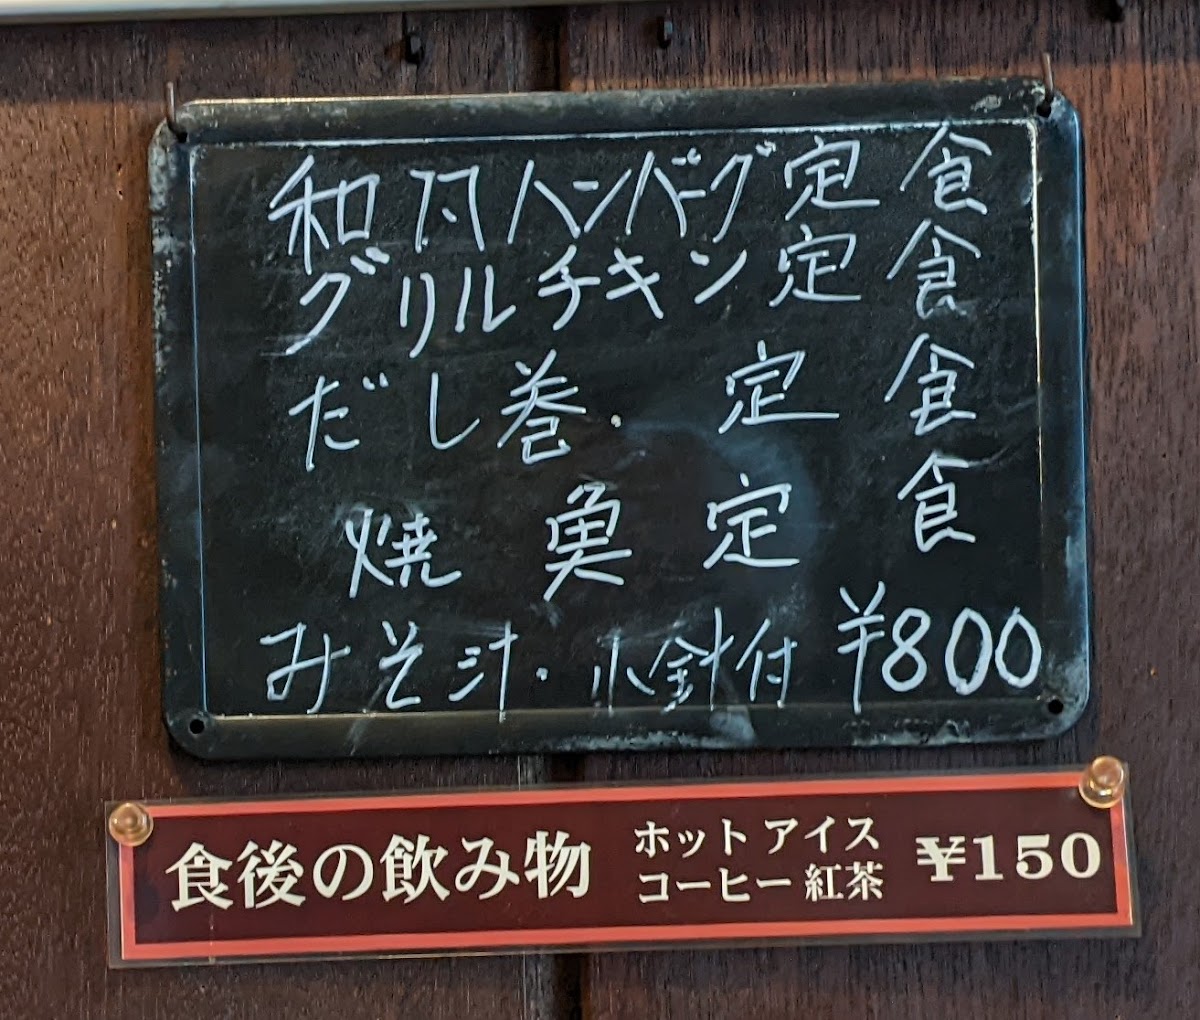 和風ハンバーグ定食
グリルチキン定食
だし巻.定食
焼魚定食
みそ汁・小鉢付 ¥800
食後の飲み物
ホット アイス
コーヒー 紅茶
¥150